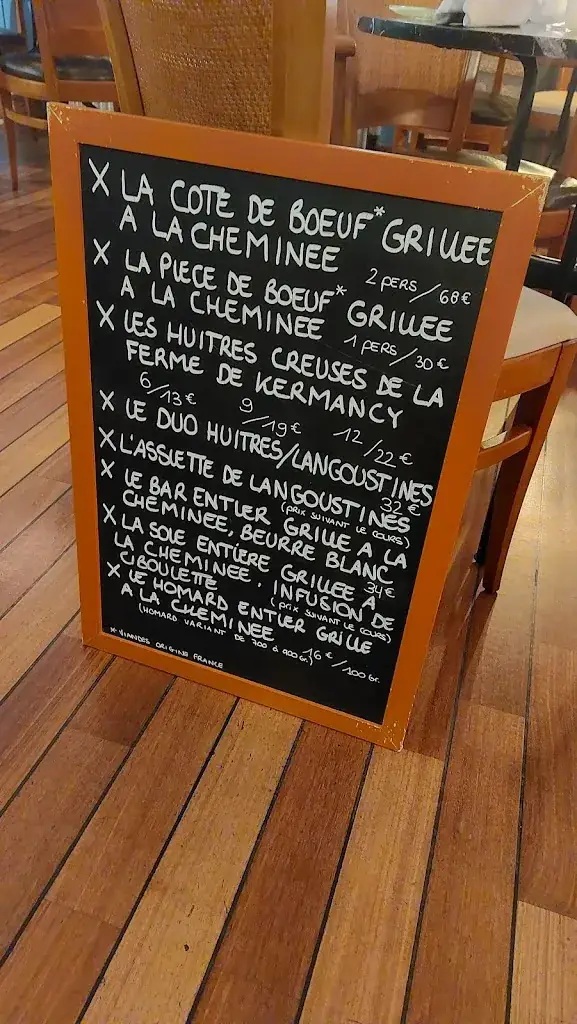 X LA COTE DE BOEUF* GRILLEE
A LA CHEMINEE
2 PERS/68€
X LA PIECE DE BOEUF* GRILLEE
A LA CHEMINEE
1 PERS/30€
X LES HUITRES CREUSES DE LA
FERME DE KERMANCY
6/13€ 9/19€ 12/22€
X LE DUO HUITRES/LANGOUSTINES
32€
X L'ASSIETTE DE LANGOUSTINES
(PRIX SUIVANT LE COURS)
X LE BAR ENTIER GRILLE A LA
CHEMINEE, BEURRE BLANC
34€
X LA SOLE ENTIERE GRILLEE A
LA CHEMINEE. INFUSION DE
CIBOULETTE
(PRIX SUIVANT LE COURS)
X LE HOMARD ENTIER GRILLE
A LA CHEMINEE
(HOMARD VARIANT DE 700 à 900 Gr.) 16€/100 Gr.
* VIANDES ORIGINE FRANCE